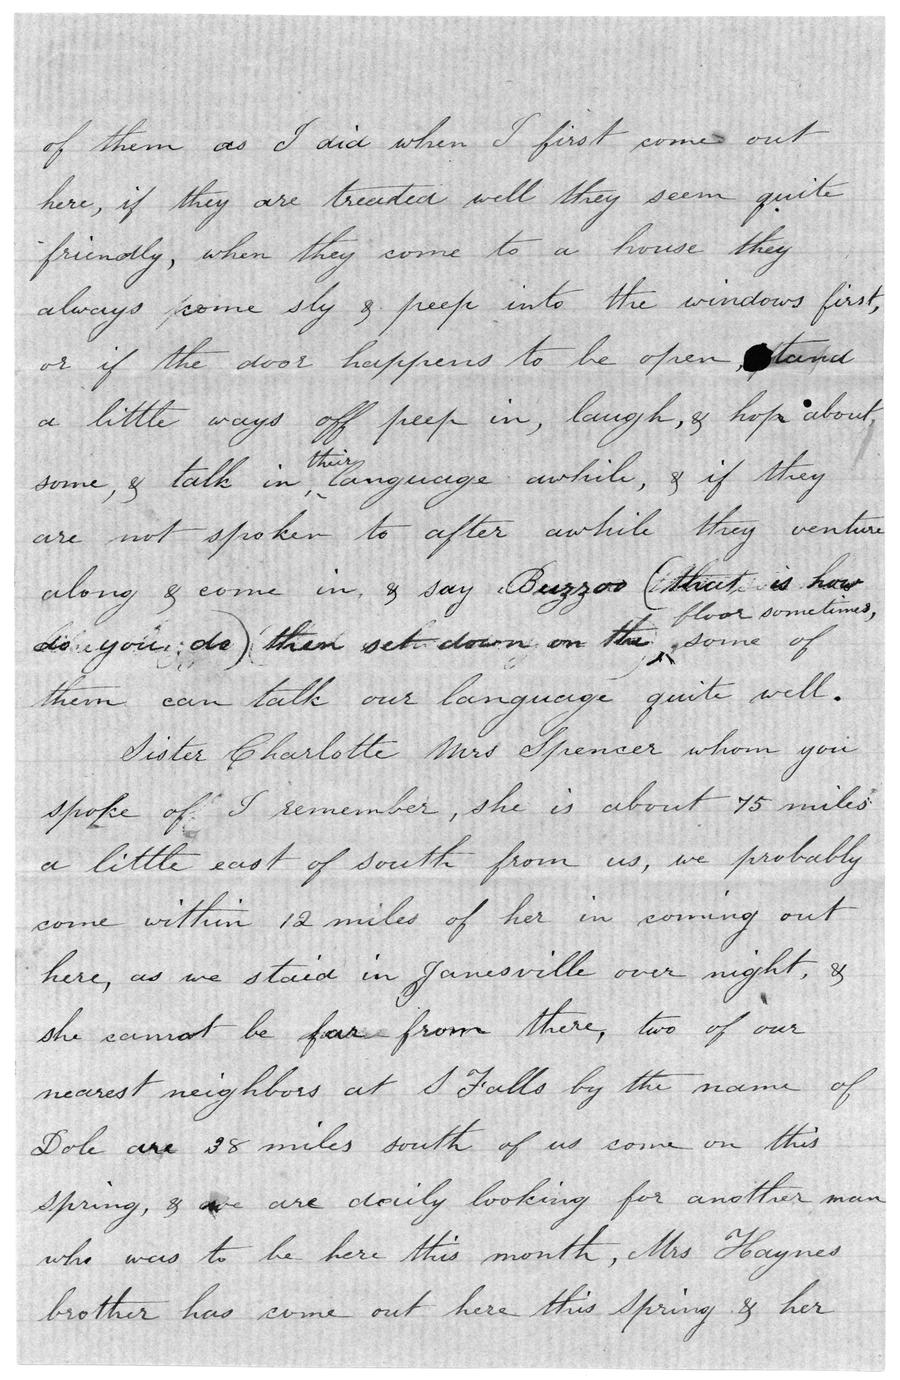 of them as I did when I first come out
here, if they are treated well they seem quite
friendly, when they come to a house they
always come sly & peep into the windows first,
or if the door happens to be open, stand
a little ways off peep in, laugh, & hop about,
some, & talk in their language awhile, & if they
are not spoken to after awhile they venture
along & come in, & say Buzzoo (that is how
do you do) then set down on the floor sometimes, some of
them can talk our language quite well.
Sister Charlotte Mrs Spencer whom you
spoke of I remember, she is about 75 miles
a little east of south from us, we probably
come within 12 miles of her in coming out
here, as we staid in Janesville over night, &
she cannot be far from there, two of our
nearest neighbors at S Falls by the name of
Dole are 38 miles south of us come on this
spring, & we are daily looking for another man
who was to be here this month, Mrs Haynes
brother has come out here this spring & her